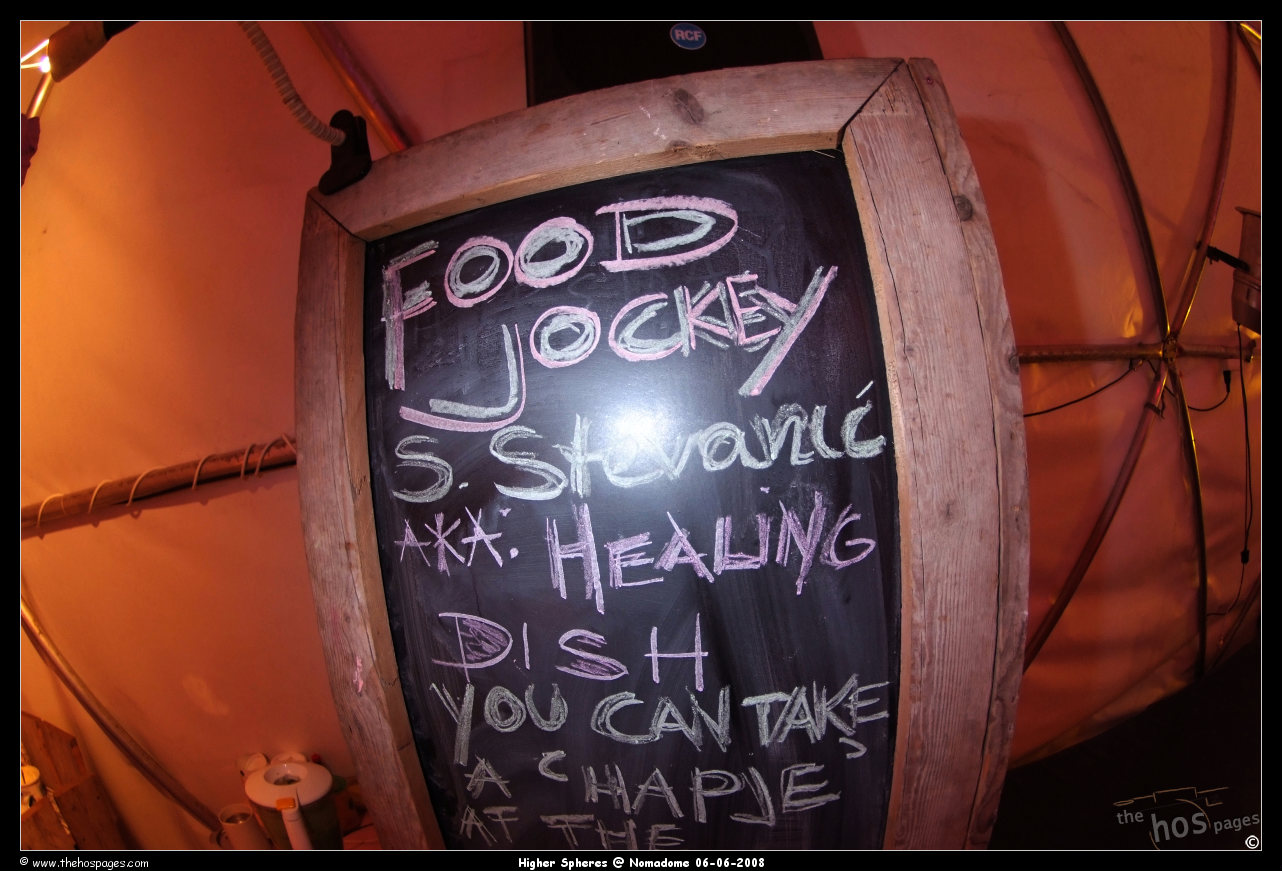 RCF
FOOD
JOCKEY
S. Stevanić
AKA: HEALING
DISH
YOU CAN TAKE
A 'HAPJE'
AT THE
the hos pages
©
© www.thehospages.com
Higher Spheres @ Nomadome 06-06-2008